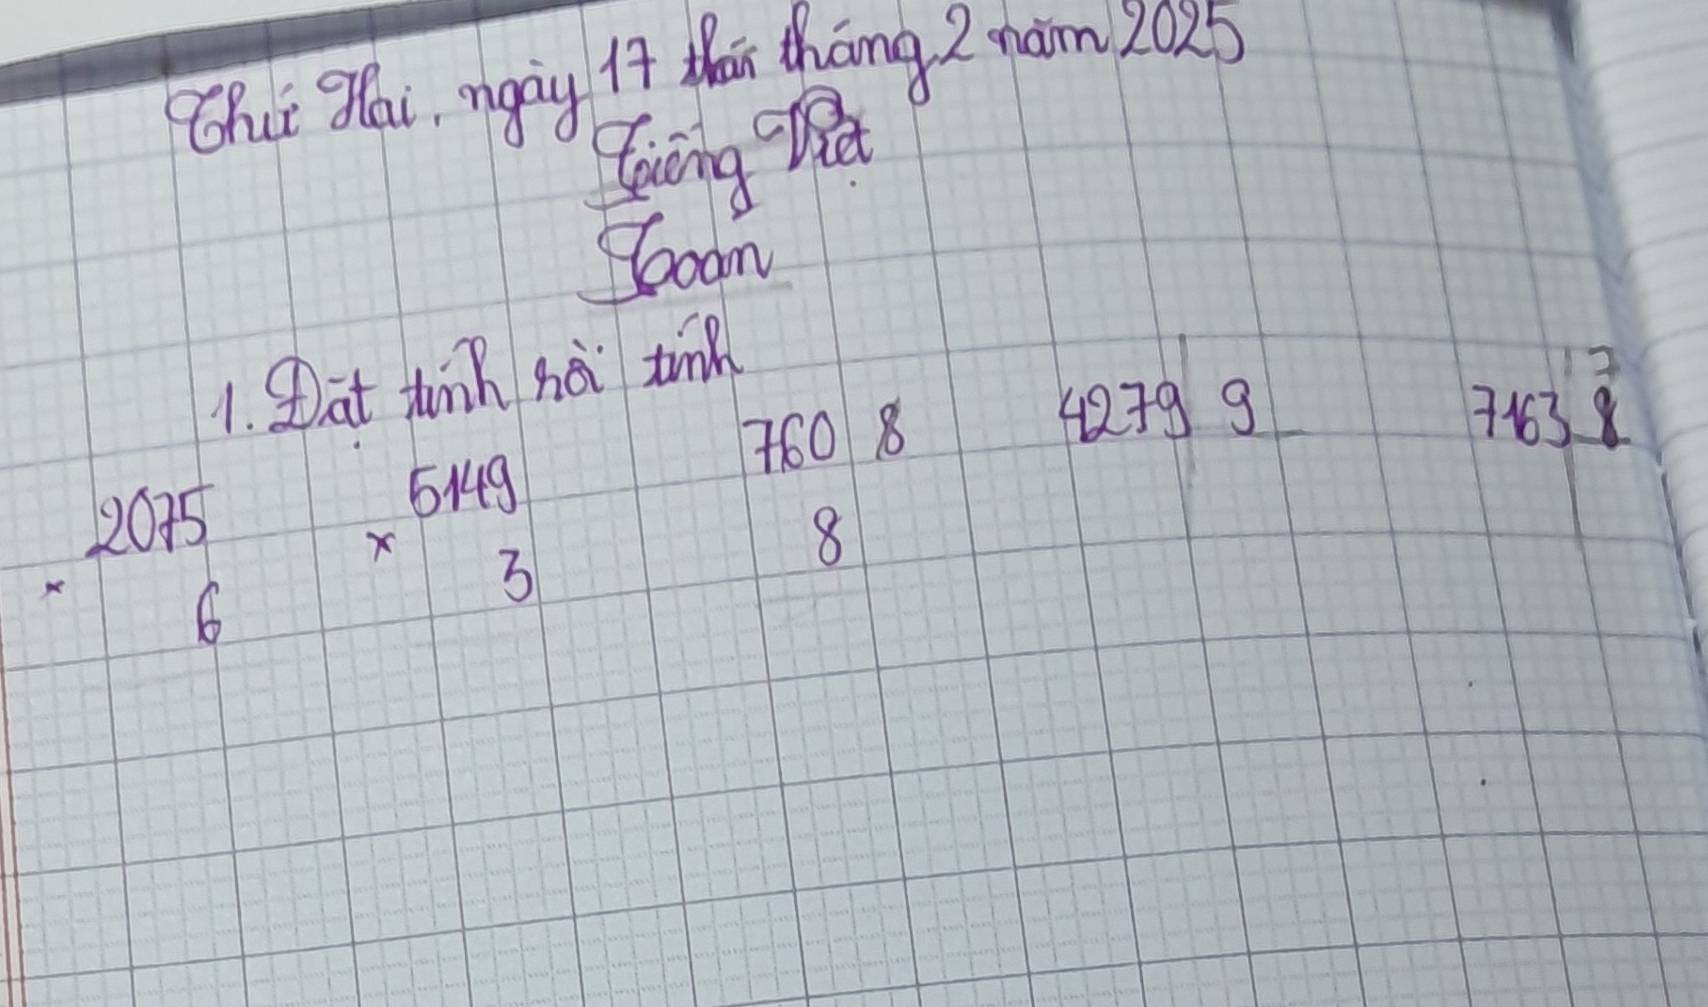 Thứ Hai, ngày 17 tháng 2 năm 2025
Tiếng Việt
Toán
1. Đặt tính rồi tính
2075 × 6
5149 × 3
760 8
8
4279 9
7163 8
7